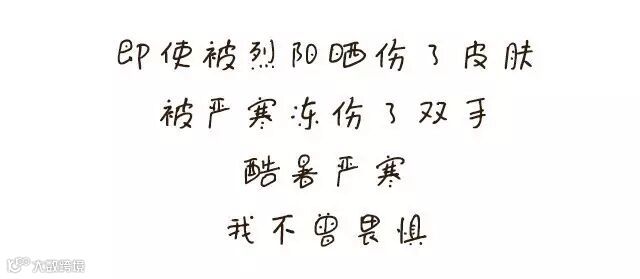 即使被烈阳晒伤了皮肤
被严寒冻伤了双手
酷暑严寒
我不曾畏惧
大数跨境